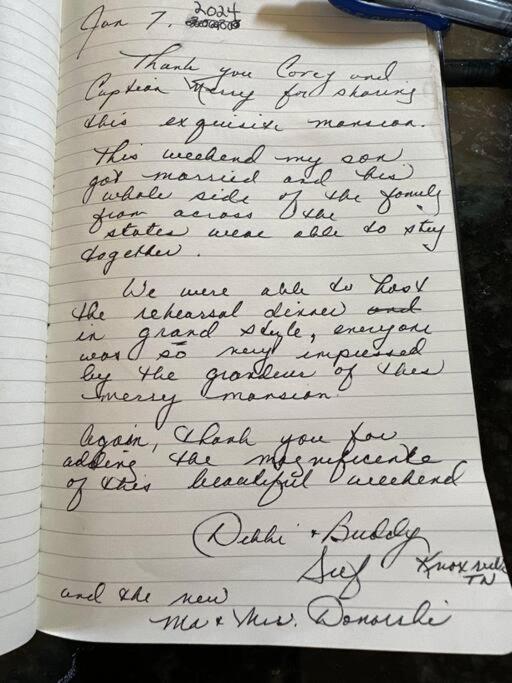 Jan 7, 2024
Thank you Corey and
Caption Merry for sharing
this exquisite mansion.
This weekend my son
got married and his
whole side of the family
from across the
states were able to stay
together.
We were able to host
the rehearsal dinner and
in grand style, everyone
was so very impressed
by the grandeur of this
merry mansion.
Again, thank you for
adding the magnificence
of this beautiful weekend
Debbi & Buddy
Knoxville
TN
and the new
Mr & Mrs.